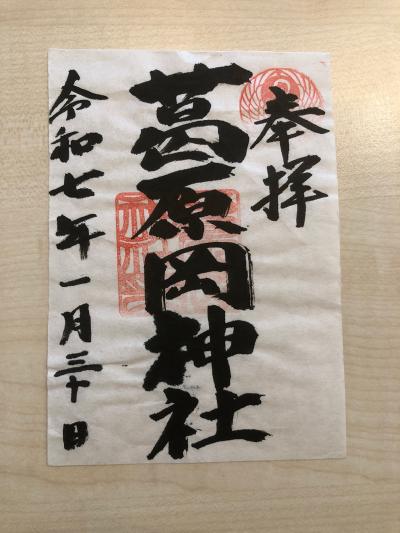 奉拝
葛原岡神社
令和七年一月三十日